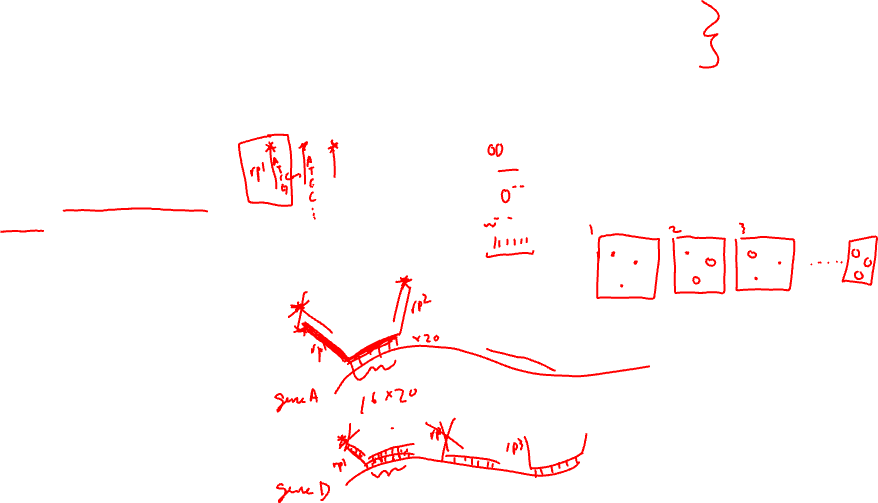 rp1
A
T
C
G
A
T
G
C
C
00
0
1 2 3
rp1
rp2
x20
gene A
16x20
rp1
rp3
gene D